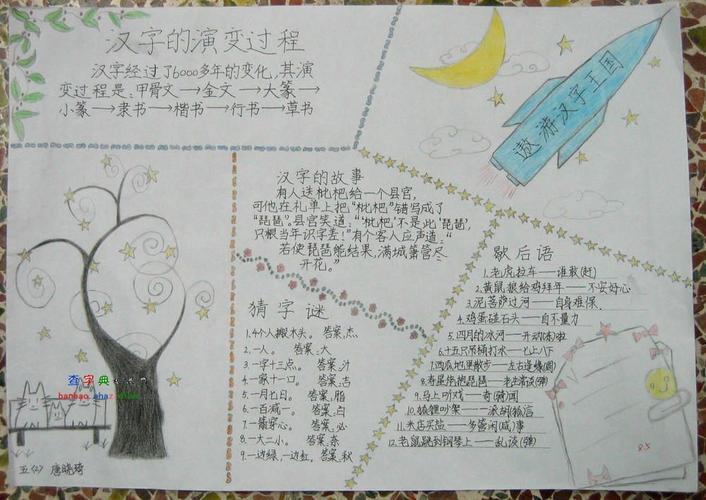 汉字的演变过程
汉字经过了6000多年的变化,其演
变过程是:甲骨文→金文→大篆→
小篆→隶书→楷书→行书→草书
遨游汉字王国
汉字的故事
有人送枇杷给一个县官,
可他在礼单上把“枇杷”错写成了
“琵琶”。县官笑道:“‘枇杷’不是此‘琵琶’,
只恨当年识字差!”有个客人应声道:“
若使琵琶能结果,满城箫管尽
开花。”
猜字谜
1.4个人搬木头。 答案,杰
2.一人。 答案:大
3.一字十三点。 答案,汁
4.一家十一口。 答案,吉
5.一月七日。 答案,脂
6.一百减一。 答案,白
7.一箭穿心。 答案,必
8.一大二小。 答案,奈
9.一边绿,一边红。答案,秋
歇后语
1.老虎拉车——谁敢(赶)
2.黄鼠狼给鸡拜年——不安好心
3.泥菩萨过河——自身难保
4.鸡蛋碰石头——自不量力
5.四月的冰河——开动(冻)啦
6.十五只吊桶打水——七上八下
7.西瓜地里散步——左右逢缘(圆)
8.寿星弹琵琶——老生常谈(弹)
9.马上听戏——奇(骑)闻
10.狐狸吵架——一派胡(狐)言
11.米店买盐——多管闲(咸)事
12.老鼠跳到钢琴上——乱谈(弹)
查字典
五(2) 唐晓琦
95